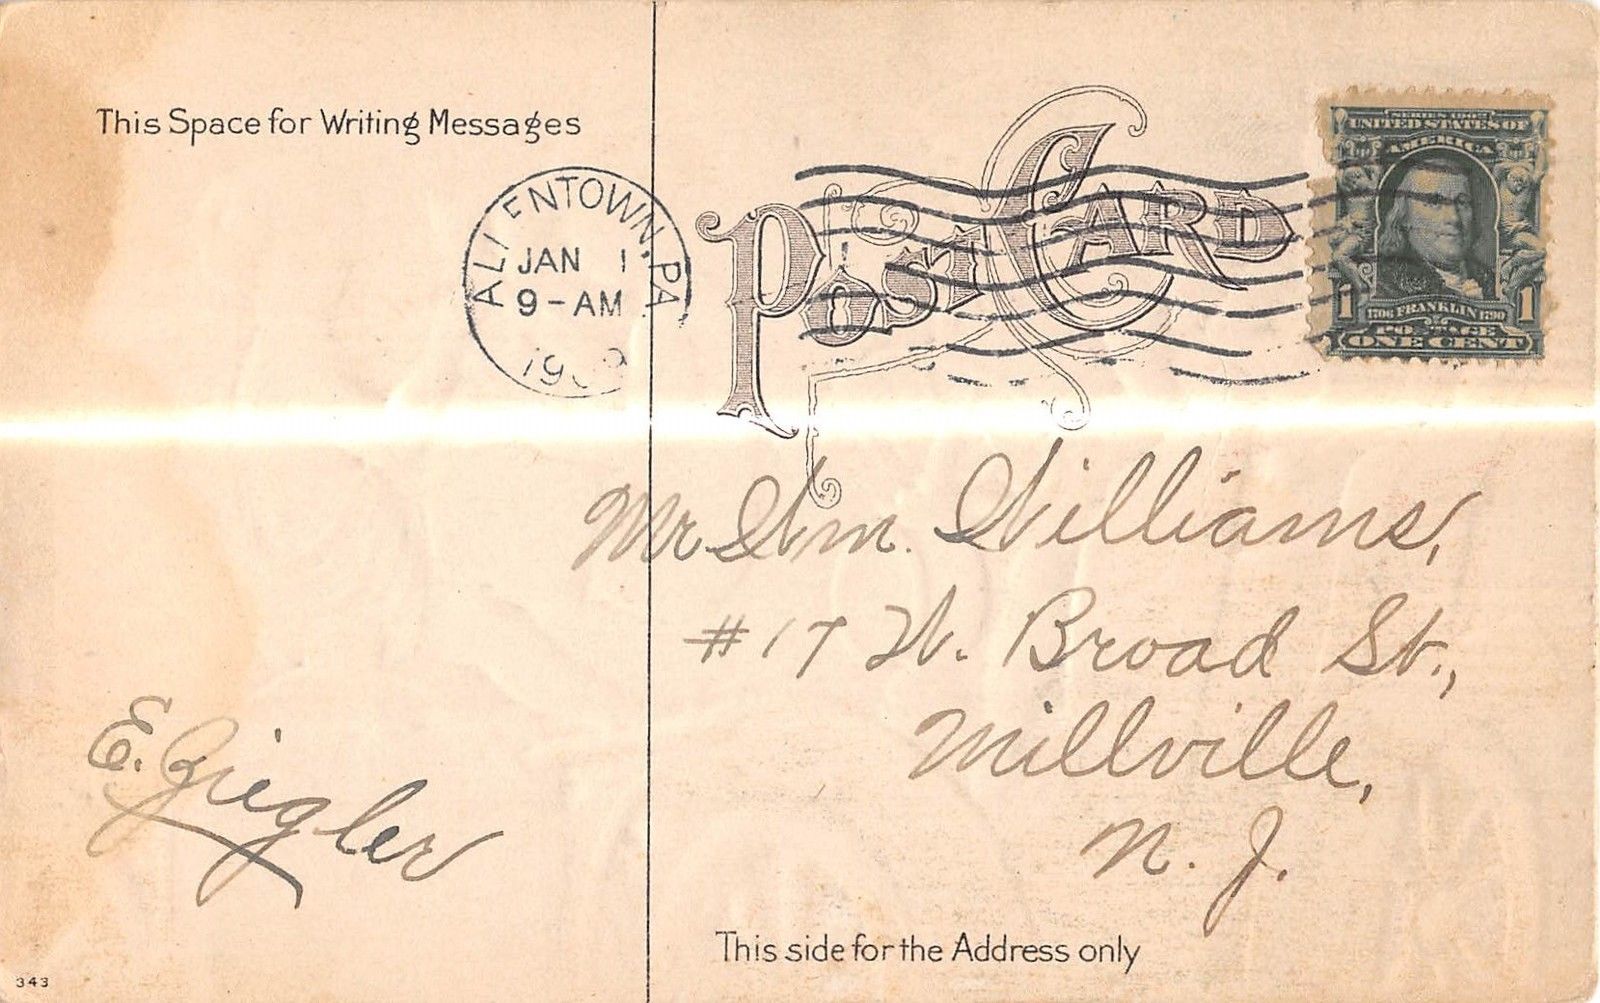 This Space for Writing Messages
ALLENTOWN, PA
JAN 1
9-AM
POST CARD
SERIES 1902
UNITED STATES OF
AMERICA
1 1
1706 FRANKLIN 1790
POSTAGE
ONE CENT
Mr Wm. Williams,
#17 W. Broad St.,
Millville,
N. J.
E. Ziegler
This side for the Address only
343